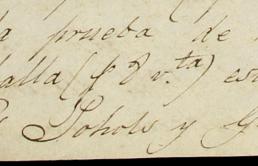 a prueba de
alla (f 8 v.ta) es
Johols y G